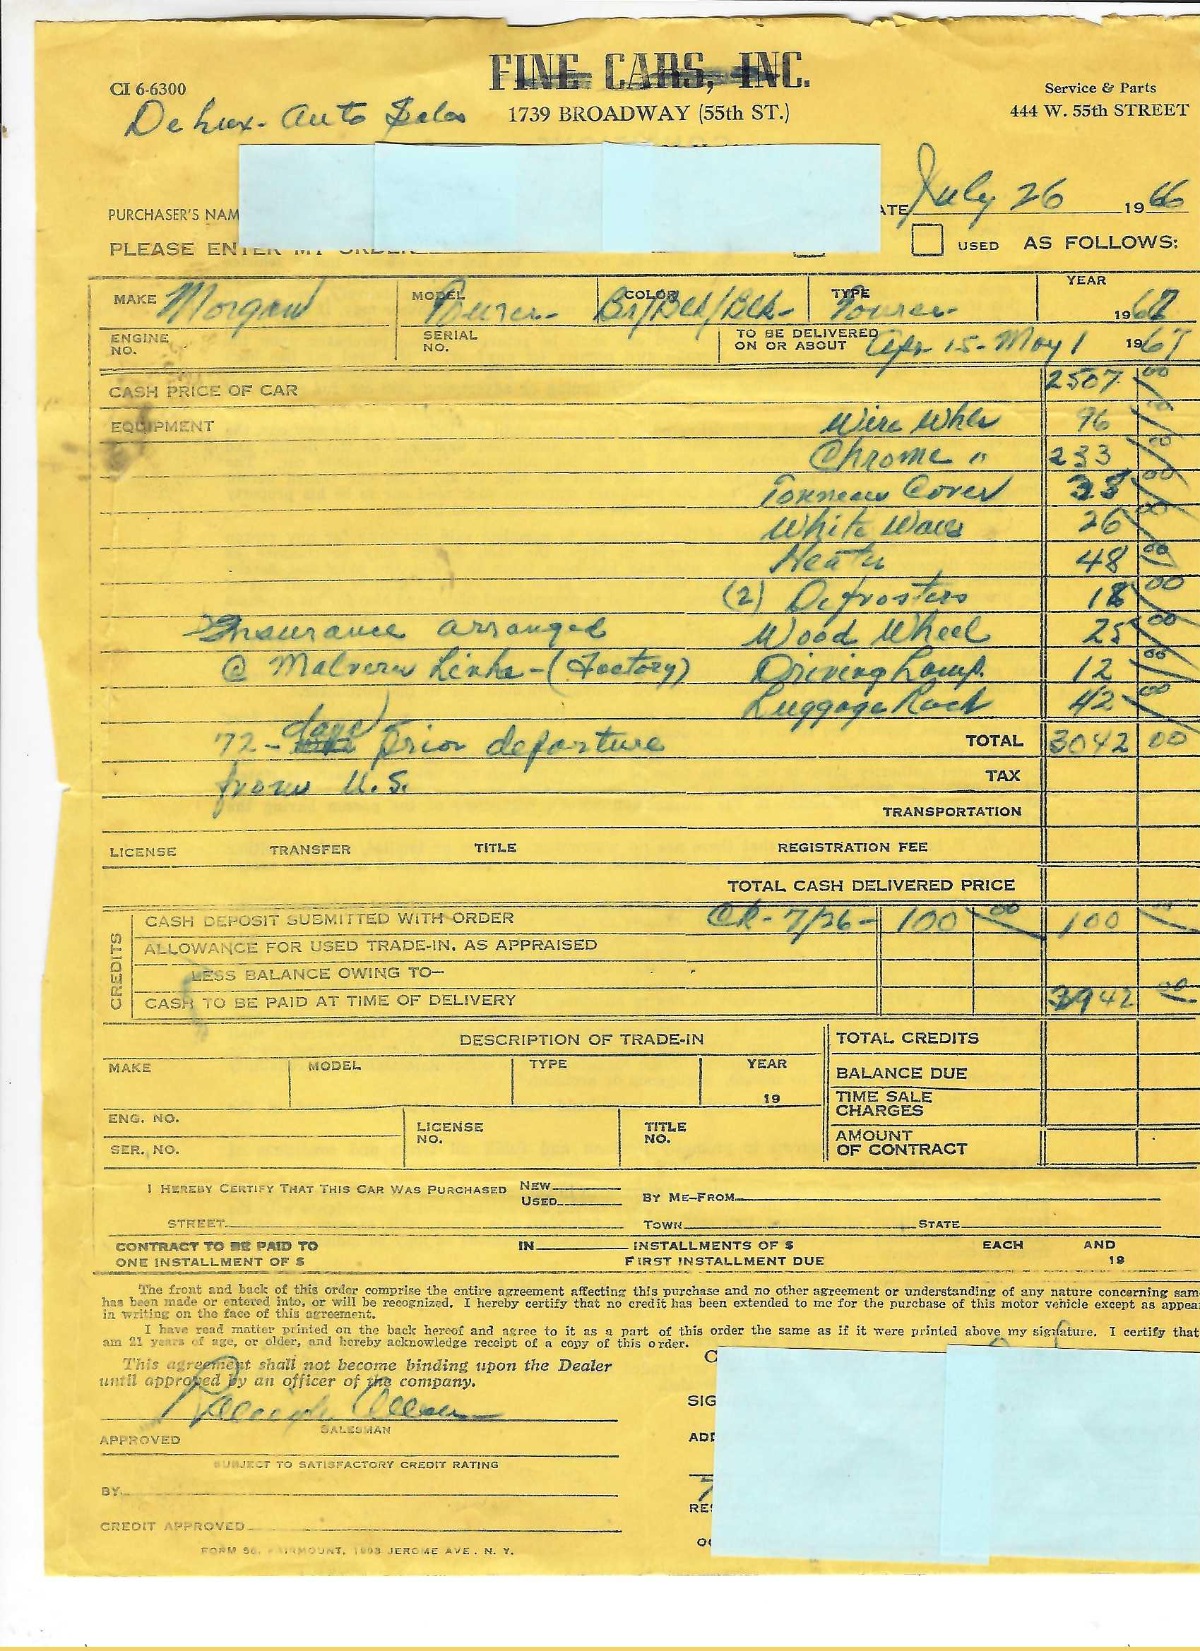 FINE CARS, INC.
CI 6-6300
Service & Parts
DeLux- Auto Sales
1739 BROADWAY (55th ST.)
444 W. 55th STREET
PURCHASER'S NAM
ATE July 26 1966
PLEASE ENTER MY ORDER
USED AS FOLLOWS:
MAKE Morgan MODEL COLOR Br/Blk/Blk- TYPE YEAR 19
ENGINE NO. SERIAL NO. TO BE DELIVERED ON OR ABOUT Apr 15-May 1 1967
CASH PRICE OF CAR 2507 00
EQUIPMENT Wire Whls 96 00
Chrome " 233 00
Tonneau Cover 00
White Walls 26 00
Heater 48 00
(2) Defrosters 18 00
Insurance arranged Wood Wheel 25 00
@ Malvern Links-(Factory) Driving Lamp. 12 00
Luggage Rack 42 00
days
72- prior departure TOTAL 3042 00
from U.S. TAX
TRANSPORTATION
LICENSE TRANSFER TITLE REGISTRATION FEE
TOTAL CASH DELIVERED PRICE
CREDITS
CASH DEPOSIT SUBMITTED WITH ORDER CK- 7/26- 100 00 100
ALLOWANCE FOR USED TRADE-IN, AS APPRAISED
LESS BALANCE OWING TO—
CASH TO BE PAID AT TIME OF DELIVERY 3942 00
DESCRIPTION OF TRADE-IN TOTAL CREDITS
MAKE MODEL TYPE YEAR 19 BALANCE DUE
TIME SALE CHARGES
ENG. NO. LICENSE NO. TITLE NO.
SER. NO. AMOUNT OF CONTRACT
I HEREBY CERTIFY THAT THIS CAR WAS PURCHASED NEW USED BY ME–FROM
STREET TOWN STATE
CONTRACT TO BE PAID TO IN INSTALLMENTS OF $ EACH AND
ONE INSTALLMENT OF $ FIRST INSTALLMENT DUE 19
The front and back of this order comprise the entire agreement affecting this purchase and no other agreement or understanding of any nature concerning sam
has been made or entered into, or will be recognized. I hereby certify that no credit has been extended to me for the purchase of this motor vehicle except as appea
in writing on the face of this agreement.
I have read matter printed on the back hereof and agree to it as a part of this order the same as if it were printed above my signature. I certify that
am 21 years of age, or older, and hereby acknowledge receipt of a copy of this order.
This agreement shall not become binding upon the Dealer
until approved by an officer of the company.
SIG
SALESMAN
APPROVED
ADD
SUBJECT TO SATISFACTORY CREDIT RATING
BY
RES
CREDIT APPROVED
FORM 56, FAIRMOUNT, 1693 JEROME AVE. N. Y.